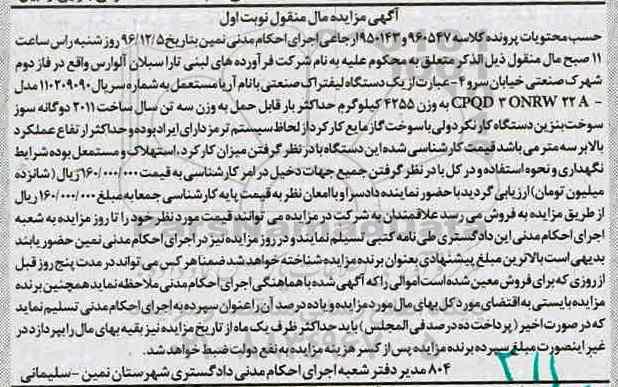 آگهی مزایده مال منقول نوبت اول
حسب محتویات پرونده کلاسه ۹۶۰۵۴۷ و ۹۵۰۱۴۳ ارجاعی اجرای احکام مدنی نمین بتاریخ ۹۶/۱۲/۵ روز شنبه راس ساعت
۱۱ صبح مال منقول ذیل الذکر متعلق به محکوم علیه به نام شرکت فرآورده های لبنی تارا سبلان آلوارس واقع در فاز دوم
شهرک صنعتی خیابان سرو ۴ - عبارت از یک دستگاه لیفتراک صنعتی با نام آریا مستعمل به شماره سریال ۱۱۰۲۰۹۰۹۰ مدل
CPQD ۳ ONRW ۲۲ A - به وزن ۴۲۵۵ کیلوگرم حداکثر بار قابل حمل به وزن سه تن سال ساخت ۲۰۱۱ دوگانه سوز
سوخت بنزین دستگاه کار نکرد ولی با سوخت گاز مایع کار کرد از لحاظ سیستم ترمز دارای ایراد بوده و حداکثر ارتفاع عملکرد
بالابر سه متر می باشد قیمت کارشناسی شده این دستگاه با در نظر گرفتن میزان کارکرد، استهلاک و مستعمل بوده شرایط
نگهداری و نحوه استفاده و در کل با در نظر گرفتن جمیع جهات دخیل در امر کارشناسی به قیمت ۱۶۰/۰۰۰/۰۰۰ ریال (شانزده
میلیون تومان) ارزیابی گردید با حضور نماینده دادسرا و با امعان نظر به قیمت پایه کارشناسی جمعا به مبلغ ۱۶۰/۰۰۰/۰۰۰ ریال
از طریق مزایده به فروش می رسد علاقمندان به شرکت در مزایده می توانند قیمت مورد نظر خود را تا روز مزایده به شعبه
اجرای احکام مدنی این دادگستری طی نامه کتبی تسیلم نمایند و در روز مزایده نیز در اجرای احکام مدنی نمین حضور یابند
بدیهی است بالاترین مبلغ پیشنهادی بعنوان برنده مزایده شناخته خواهد شد ضمنا هر کس می تواند در مدت پنج روز قبل
از روزی که برای فروش معین شده است اموالی را که آگهی شده با هماهنگی اجرای احکام مدنی ملاحظه نماید همچنین برنده
مزایده بایستی به اقتضای مورد کل بهای مال مورد مزایده و یا ده درصد آن را عنوان سپرده به اجرای احکام مدنی تسلیم نماید
که در صورت اخیر (پرداخت ده درصد فی المجلس) باید حداکثر ظرف یک ماه از تاریخ مزایده نیز بقیه بهای مال را بپردازد در
غیر اینصورت مبلغ سپرده برنده مزایده پس از کسر هزینه مزایده به نفع دولت ضبط خواهد شد.
۸۰۴ مدیر دفتر شعبه اجرای احکام مدنی دادگستری شهرستان نمین - سلیمانی